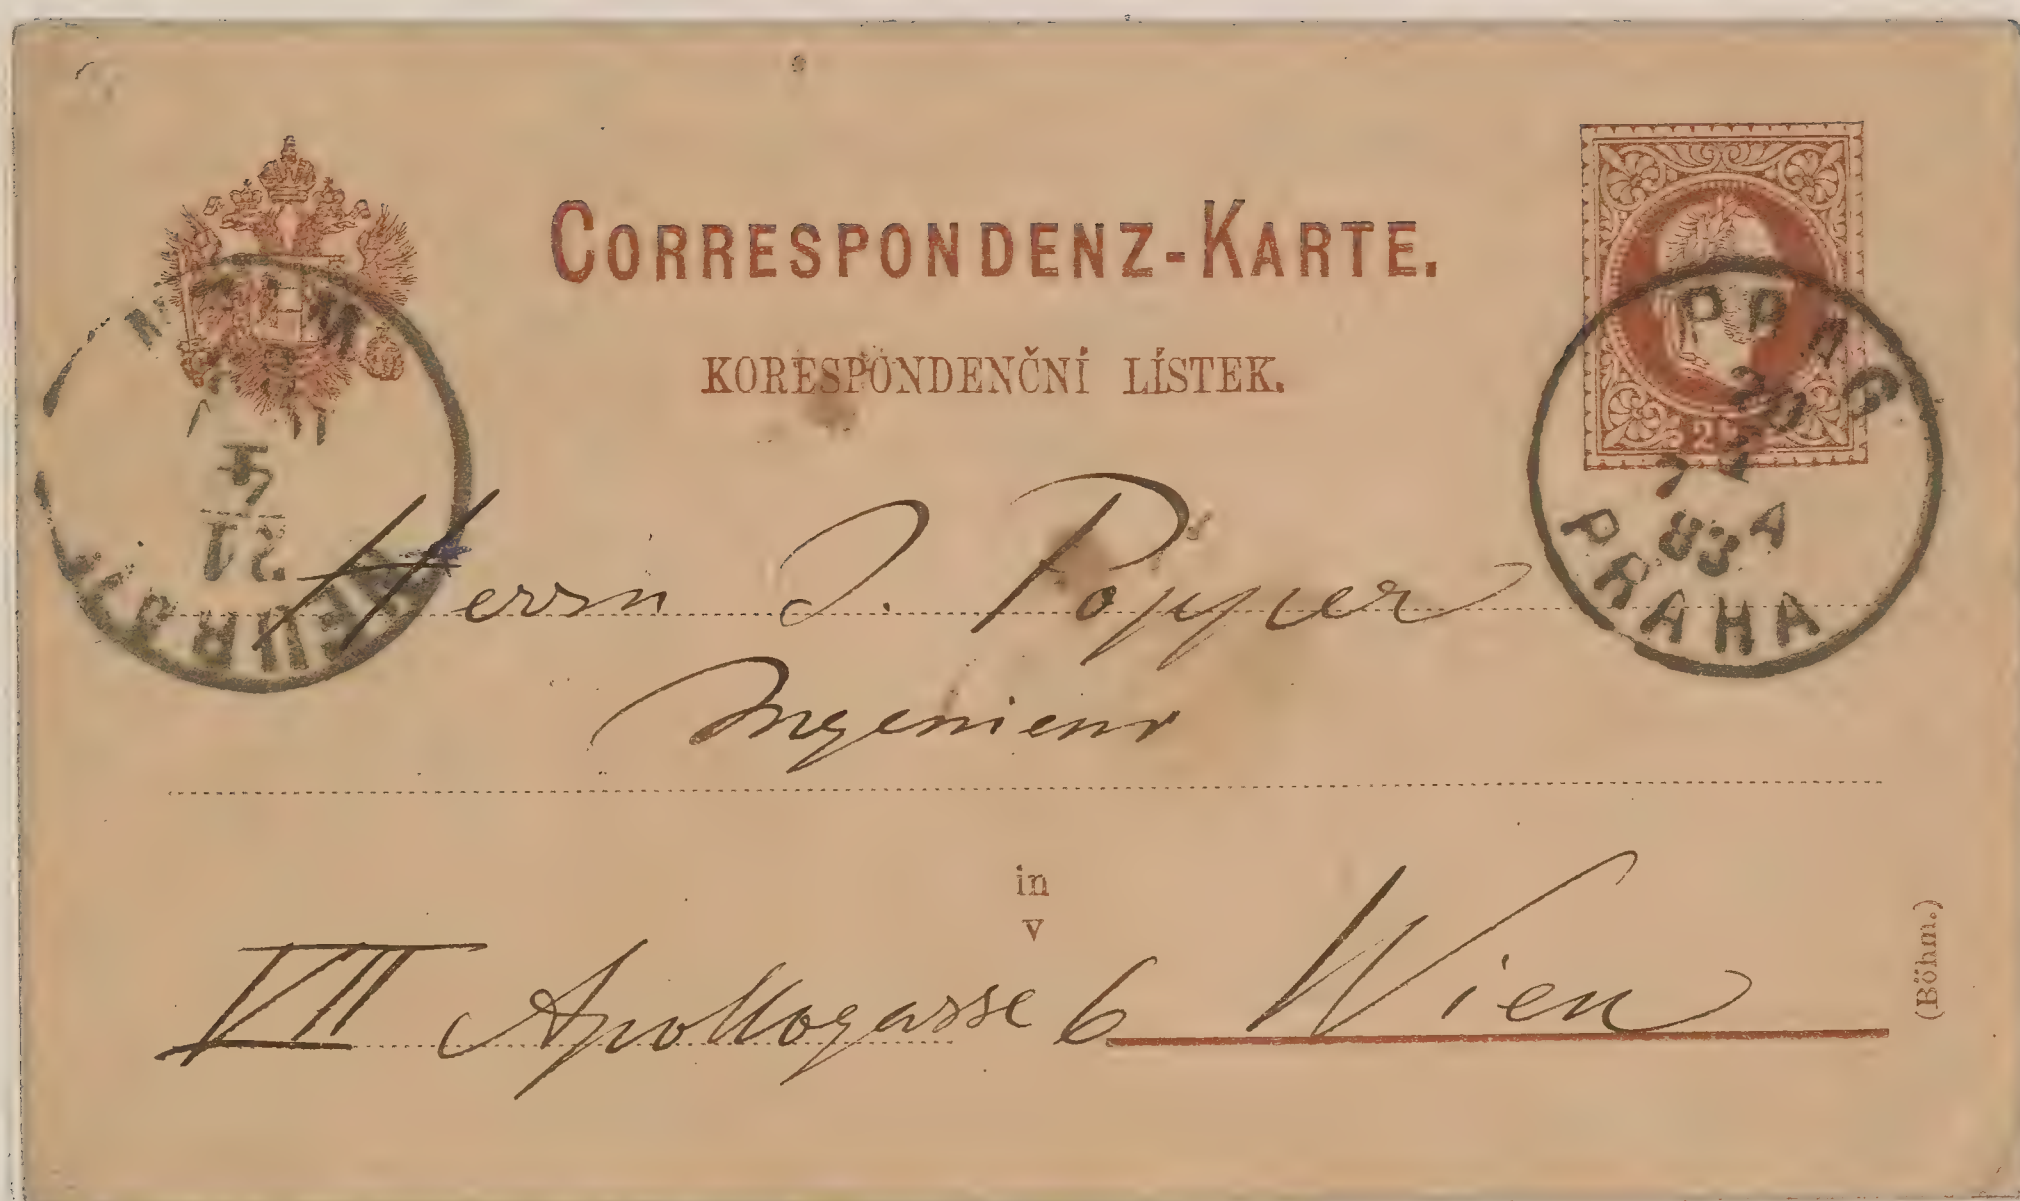 CORRESPONDENZ-KARTE.
KORESPONDENČNÍ LÍSTEK.
PRAG
20
4
83 A
PRAHA
NEUBAU
21
4
Herrn J. Popper
Ingenieur
in
v
VII Apollogasse 6 Wien
(Böhm.)